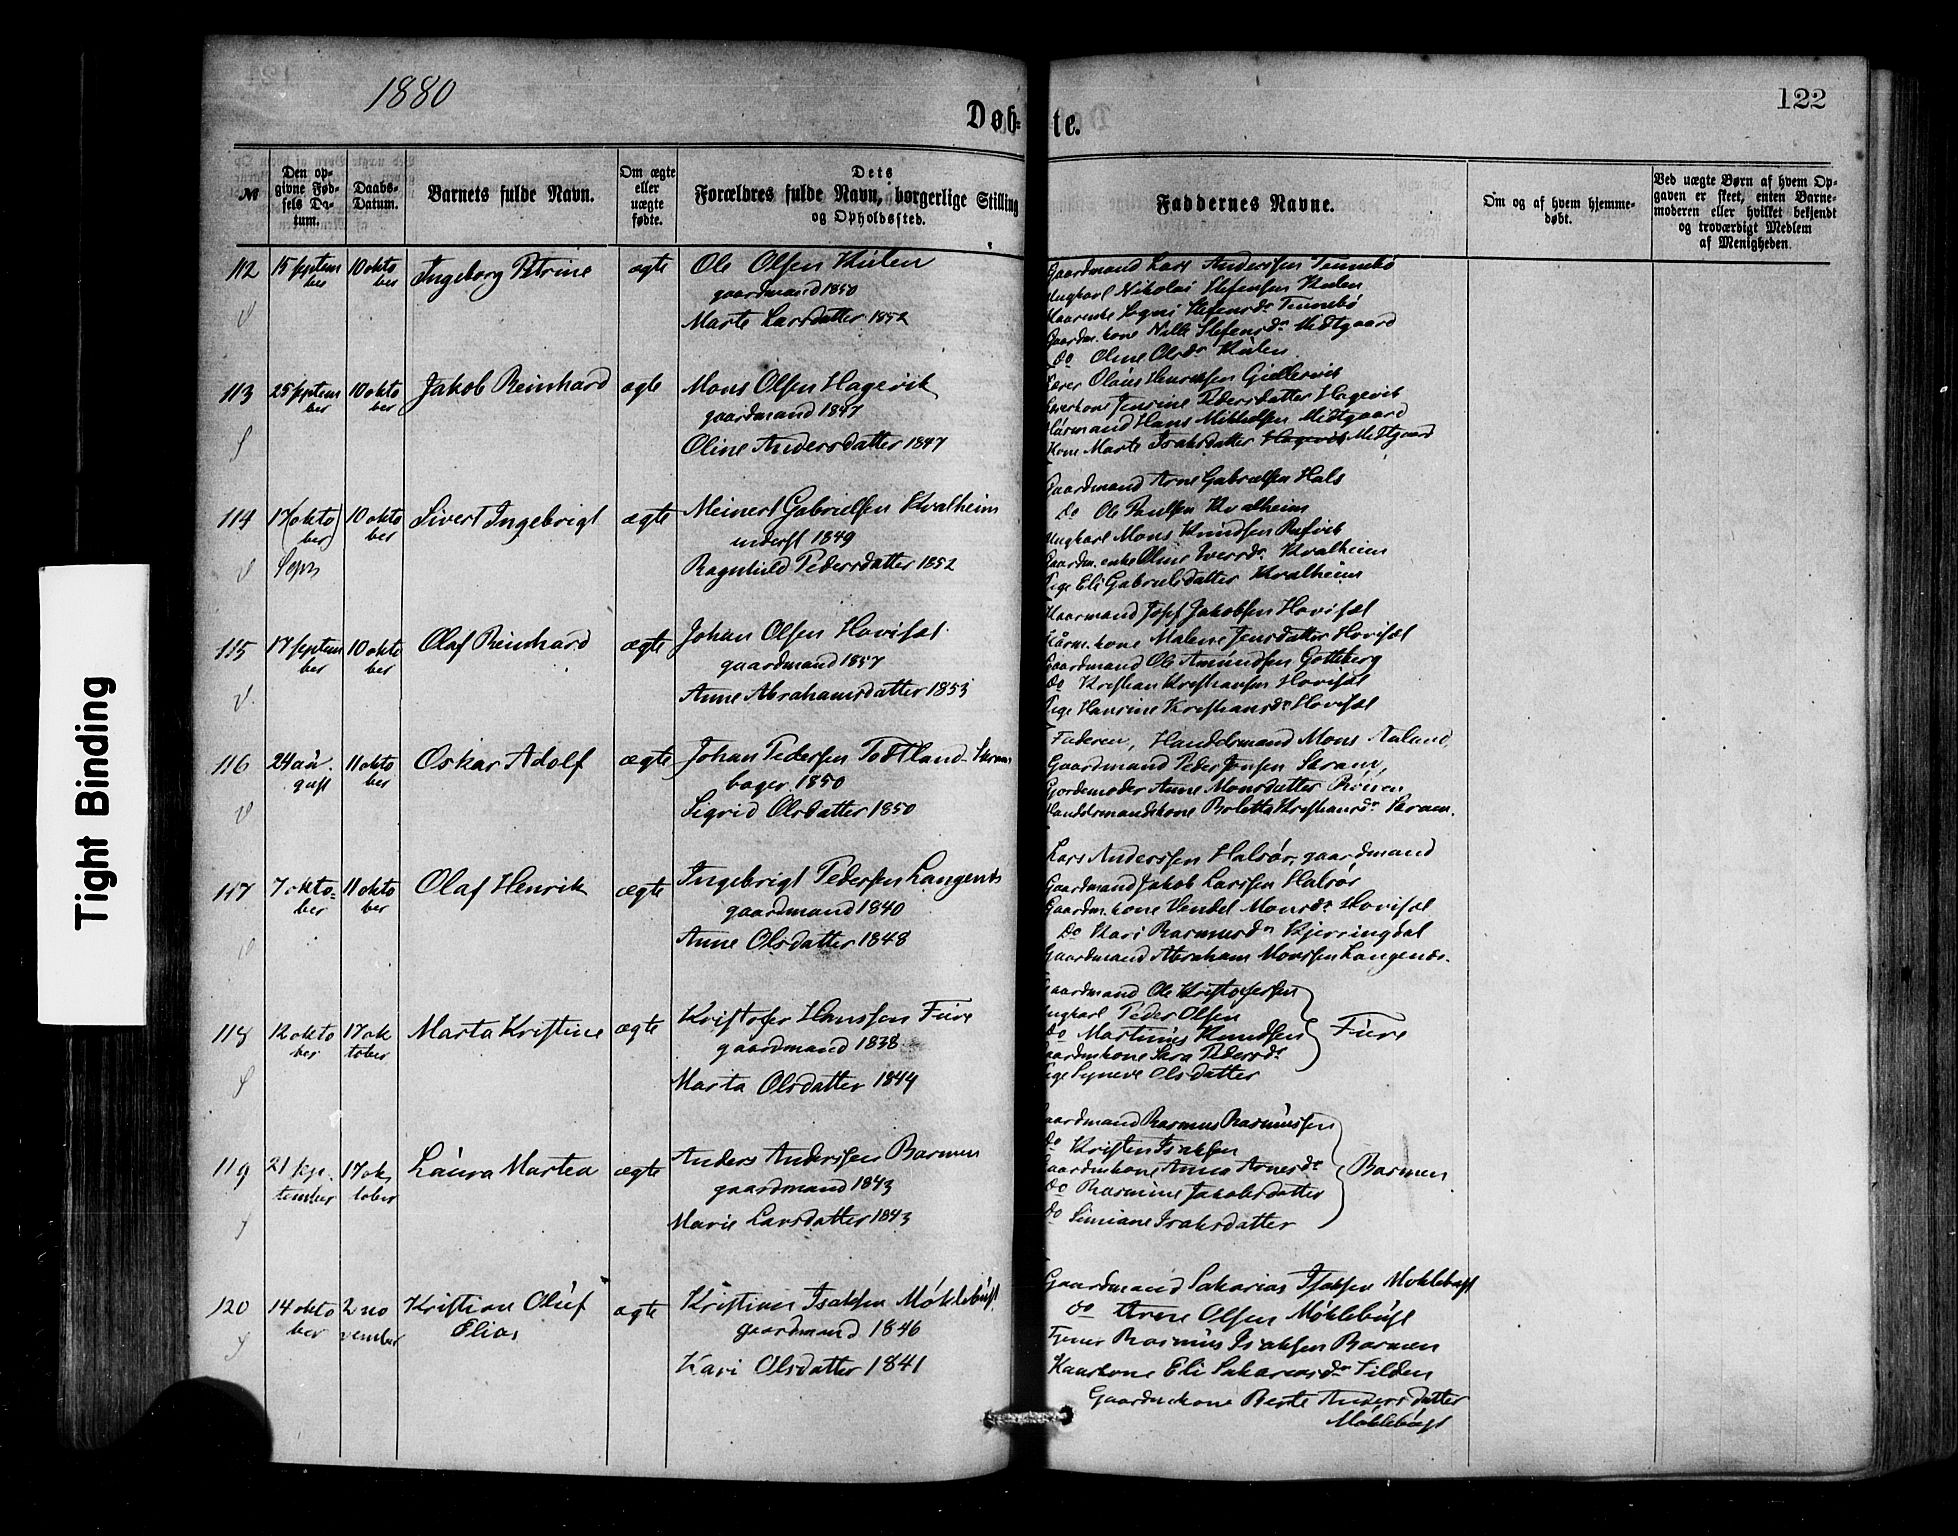 Tight Binding
1880
122
Døb- te.
№
Den op-
givne Fød-
sels Da-
tum.
Daabs-
Datum.
Barnets fulde Navn.
Om ægte
eller
uægte
fødte.
Dets
Forældres fulde Navn, borgerlige Stilling
og Opholdssted.
Faddernes Navne.
Om og af hvem hjemme-
døbt.
Ved uægte Børn af hvem Op-
gaven er skeet, enten Barne-
moderen eller hvilket bekjendt
og troværdigt Medlem
af Menigheden.
112 15 septem
ber 10 okto
ber Ingeborg Petrine ægte Ole Olsen Kulen
gaardmand 1850
Marte Larsdatter 1852
Gaardmand Lars Anderssen Tennebø
Ungkarl Nikolai Stefensen Kulen
Stefensdr Tennebø
Gaardm.kone Stefensdr Midtgaard
do Oline Olsdr Kulen
113 25 septem
ber 10 okto
ber Jakob Reinhard ægte Mons Olsen Hagevik
gaardmand 1847
Oline Andersdatter 1847
Olaus
Jensine Pedersdatter Hagevik
Hans Mikkelsen Midtgaard
Kone Marte Isaksdatter Hagevik Midtgaard
114 17 (okto)
ber
Sept 10 okto
ber Sivert Ingebrigt ægte Meinert Gabrielsen Kvalheim
inderst 1849
Ragnhild Pedersdatter 1852
Gaardmand Arne Gabrielsen Hals
do Ole Paulsen Kvalheim
Ungkarl Mons Knudsen
Gaardm.enke Oline Iversdr Kvalheim
Pige Eli Gabrielsdatter Kvalheim
115 17 septem
ber 10 okto
ber Olaf Reinhard ægte Johan Olsen Hovisæt
gaardmand 1857
Anne Abrahamsdatter 1853
Kaarmand Josef Jakobsen Hovisæt
Kårm.kone Malene Jensdatter Hovisæt
Gaardmand Ole Amundsen Gotteberg
do Kristian Kristiansen Hovisæt
Pige Hansine Kristiansdr Hovisæt
116 24 au-
gust 11 okto
ber Oskar Adolf ægte Johan Pedersen Totland- Skram
bager 1850
Sigrid Olsdatter 1850
Faderen, Handelsmand Mons Aaland,
Gaardmand Peder Jonsen Skram,
Gjordemoder Anne Monsdatter
Handelsmandskone Boletta Kristiansdr Skram.
117 7 okto-
ber 11 okto
ber Olaf Henrik ægte Ingebrigt Pedersen Langenes
gaardmand 1840
Anne Olsdatter 1848
Lars Anderssen Halsør, gaardmand
Gaardmand Jakob Larssen Halsør
Gaardm.kone Vendel Monsdr Hovisæt
do Kari Rasmusdr Kjerringdal
Gaardmand Abraham Monssen Langenes.
118 12 okto
ber 17 ok
tober Marta Kristine ægte Kristofer Hanssen Fure
gaardmand 1838
Marta Olsdatter 1844
Gaardmand Ole Kristofersen
Ungkarl Peder Olsen
do Martinus Knudsen
Gaardmkone Sara Pedersdr
Pige Synneve Olsdatter
Fure
119 21 sep-
tember 17 ok
tober Laura Martea ægte Anders Anderssen Barmen
gaardmand 1843
Marie Larsdatter 1843
Gaardmand Rasmus Rasmussen
do Kristen Isaksen
Gaardmkone Anna Arnesdr
do Rasmine Jakobsdatter
do Simiane Isaksdatter
Barmen
120 14 okto
ber 2 no
vember Kristian Oluf
Elias ægte Kristian Isaksen Møklebust
gaardmand 1846
Kari Olsdatter 1841
Gaardmand Sakarias Isaksen Moklebust
do Arne Olsen Møklebust
Rasmus Isaksen Barmen
Kaarkone Eli Sakariasdr Silden
Gaardmkone Berte Andersdatter
Møklebust